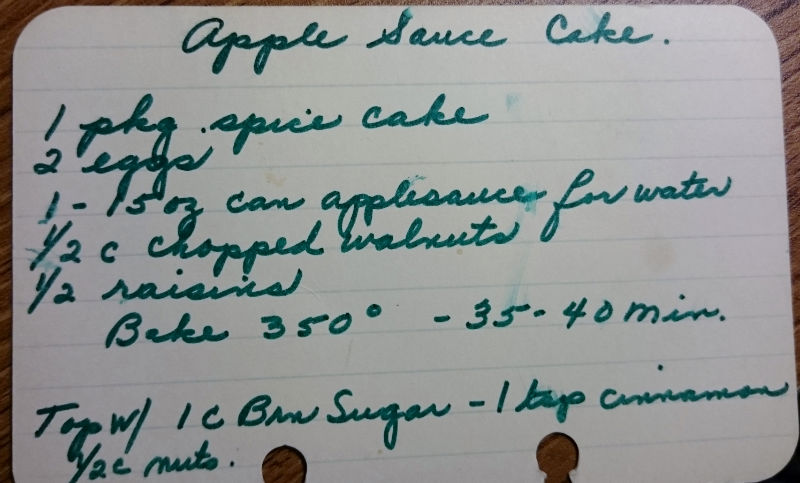 Apple Sauce Cake.
1 pkg. spice cake
2 eggs
1 - 15 oz can applesauce for water
1/2 c chopped walnuts
1/2 raisins
Bake 350° - 35 - 40 min.
Top W/ 1 c Brn Sugar - 1 tsp cinnamon
1/2 c nuts.